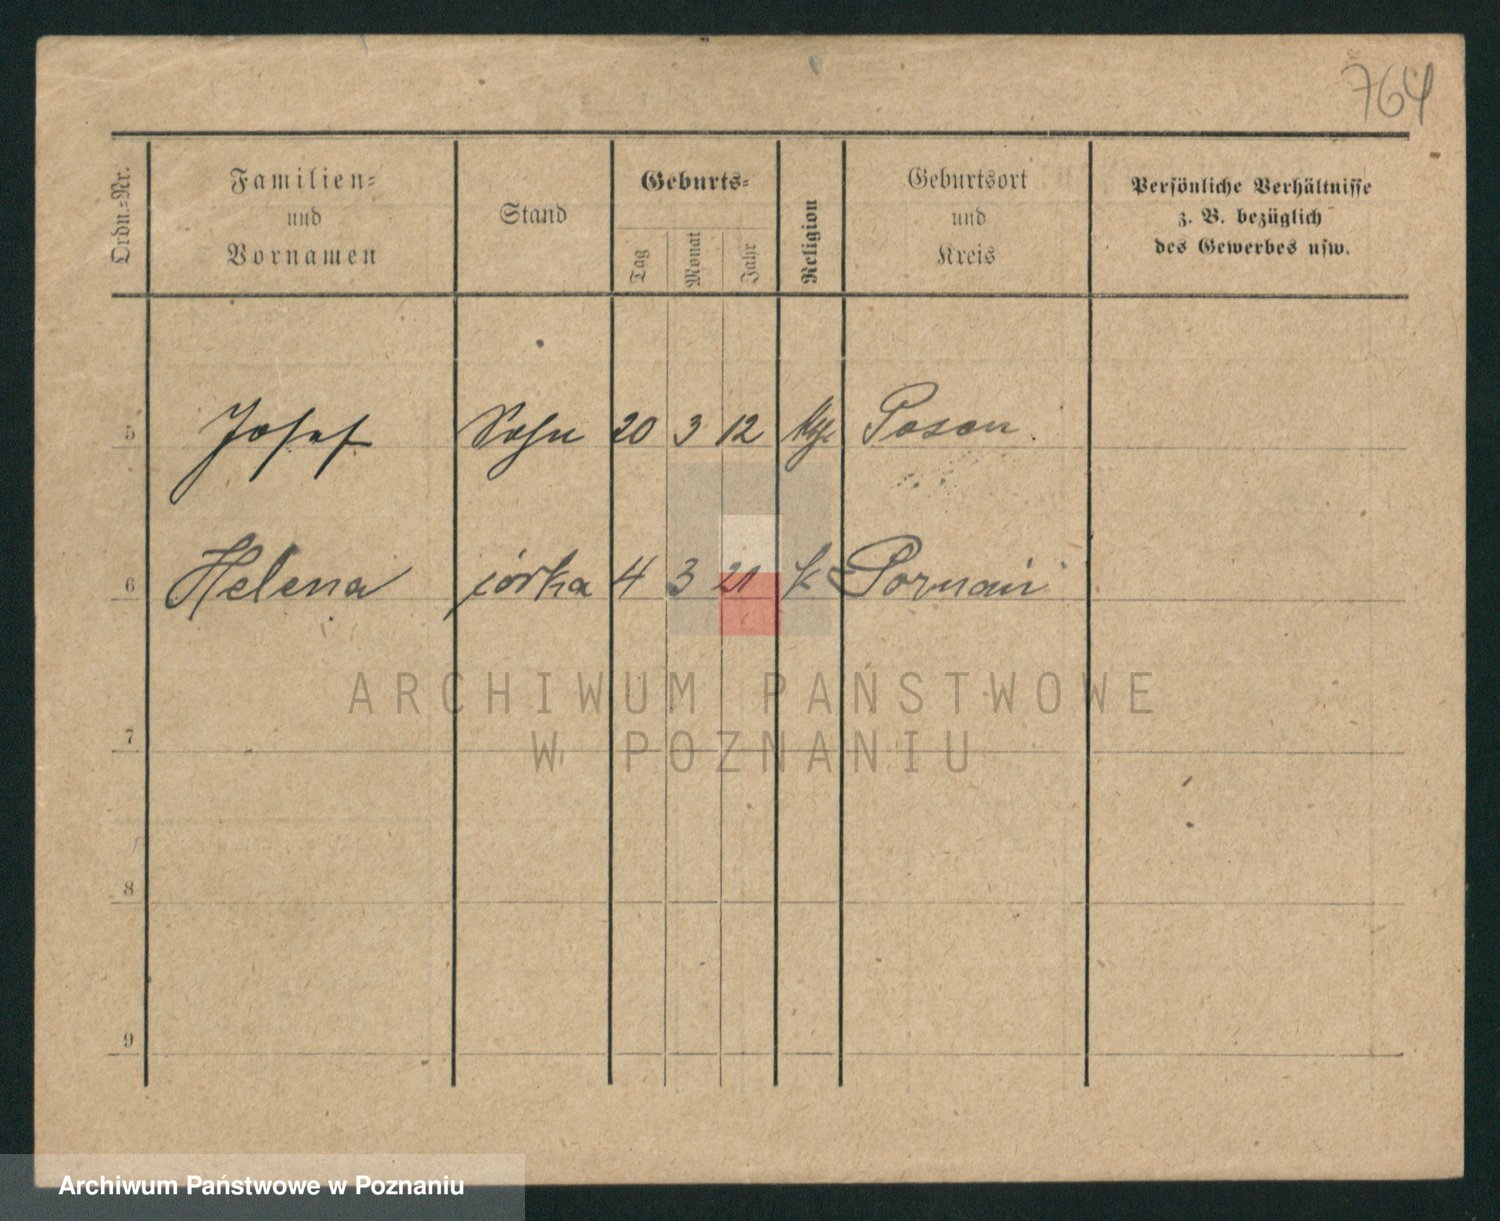 764
Ordn.-Nr.
Familien-
und
Vornamen
Stand
Geburts-
Tag
Monat
Jahr
Religion
Geburtsort
und
Kreis
Persönliche Verhältnisse
z. B. bezüglich
des Gewerbes usw.
5 Josef Sohn 20 3 12 Posen
6 Helena córka 4 3 21 k Poznań
ARCHIWUM PAŃSTWOWE
W POZNANIU
7
8
9
Archiwum Państwowe w Poznaniu